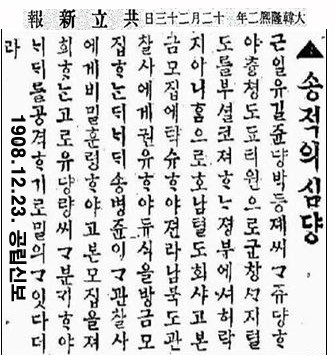 大韓隆熙二年 十二月二十三日 共立新報
▲송적의심댱
근일유길쥰댱박등졔씨ㄱ쥬댱ᄒᆞ
야츙쳥도됴티원으로군창ᄭᆞ지텰
도를부셜코져ᄒᆞᄂᆞᆫ졍부에셔허락
지아니홈으로호남텰도회샤고본
금모집에탁슈ᄒᆞ야젼라남북도관
찰사에게권유ᄒᆞ야듀식을방금모
집ᄒᆞᄂᆞᆫᄃᆡᄂᆡᄃᆡ송병쥰이ㄱ관찰사
에게비밀훈령ᄒᆞ야고본모집을져
희ᄒᆞᄂᆞᆫ고로유댱량씨ㄱ분긔ᄒᆞ야
ᄂᆡᄃᆡ를공격ᄒᆞ기로밀의ㄱ잇다더
라
1908.12.23. 공립신보